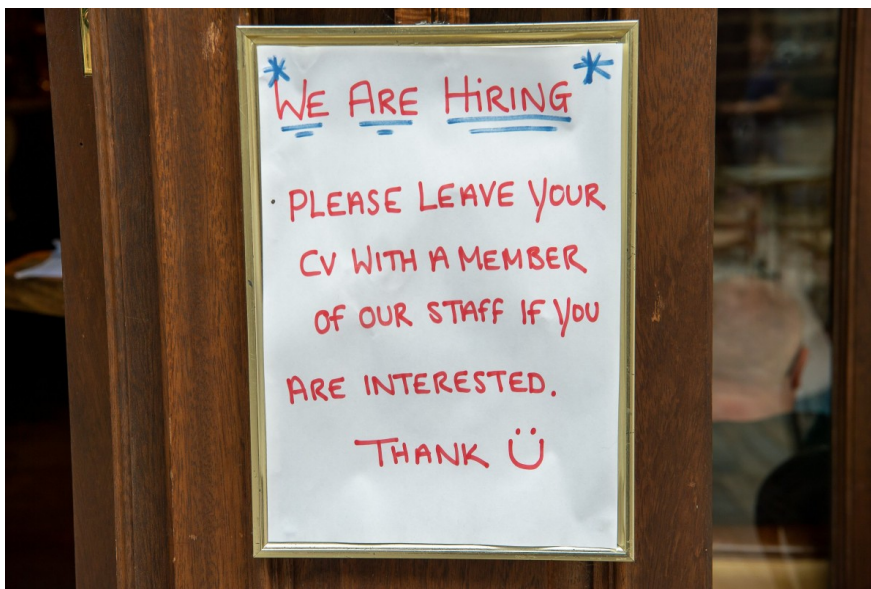 *WE ARE HiRING*
PLEASE LEAVE YOUR
CV WITH A MEMBER
OF OUR STAFF IF YOU
ARE INTERESTED.
THANK Ü